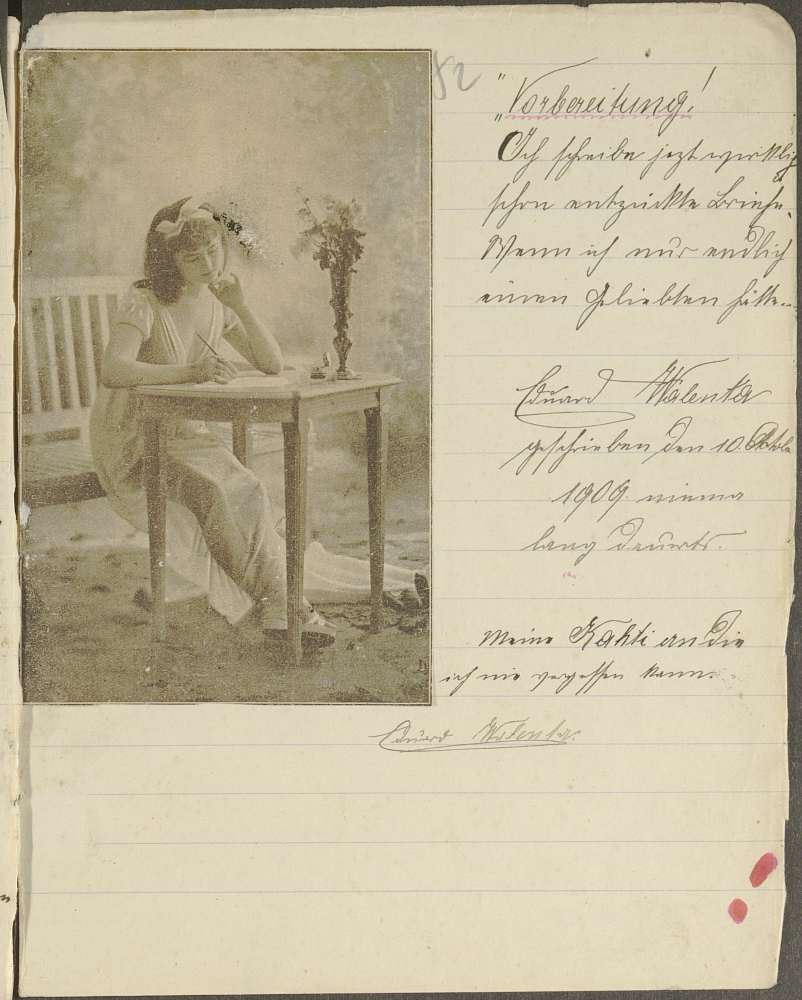 82
"Vorbereitung!
Ich schreibe jezt wirklig
schon entzückte Briefe.
Wenn ich nur endlich
einen Geliebten hätte..
Eduard Walenta
geschrieben den 10. Oktob
1909
lang dauerts.
Meine Kahti an die
ich nie vergessen kann.
Eduard Walenta.